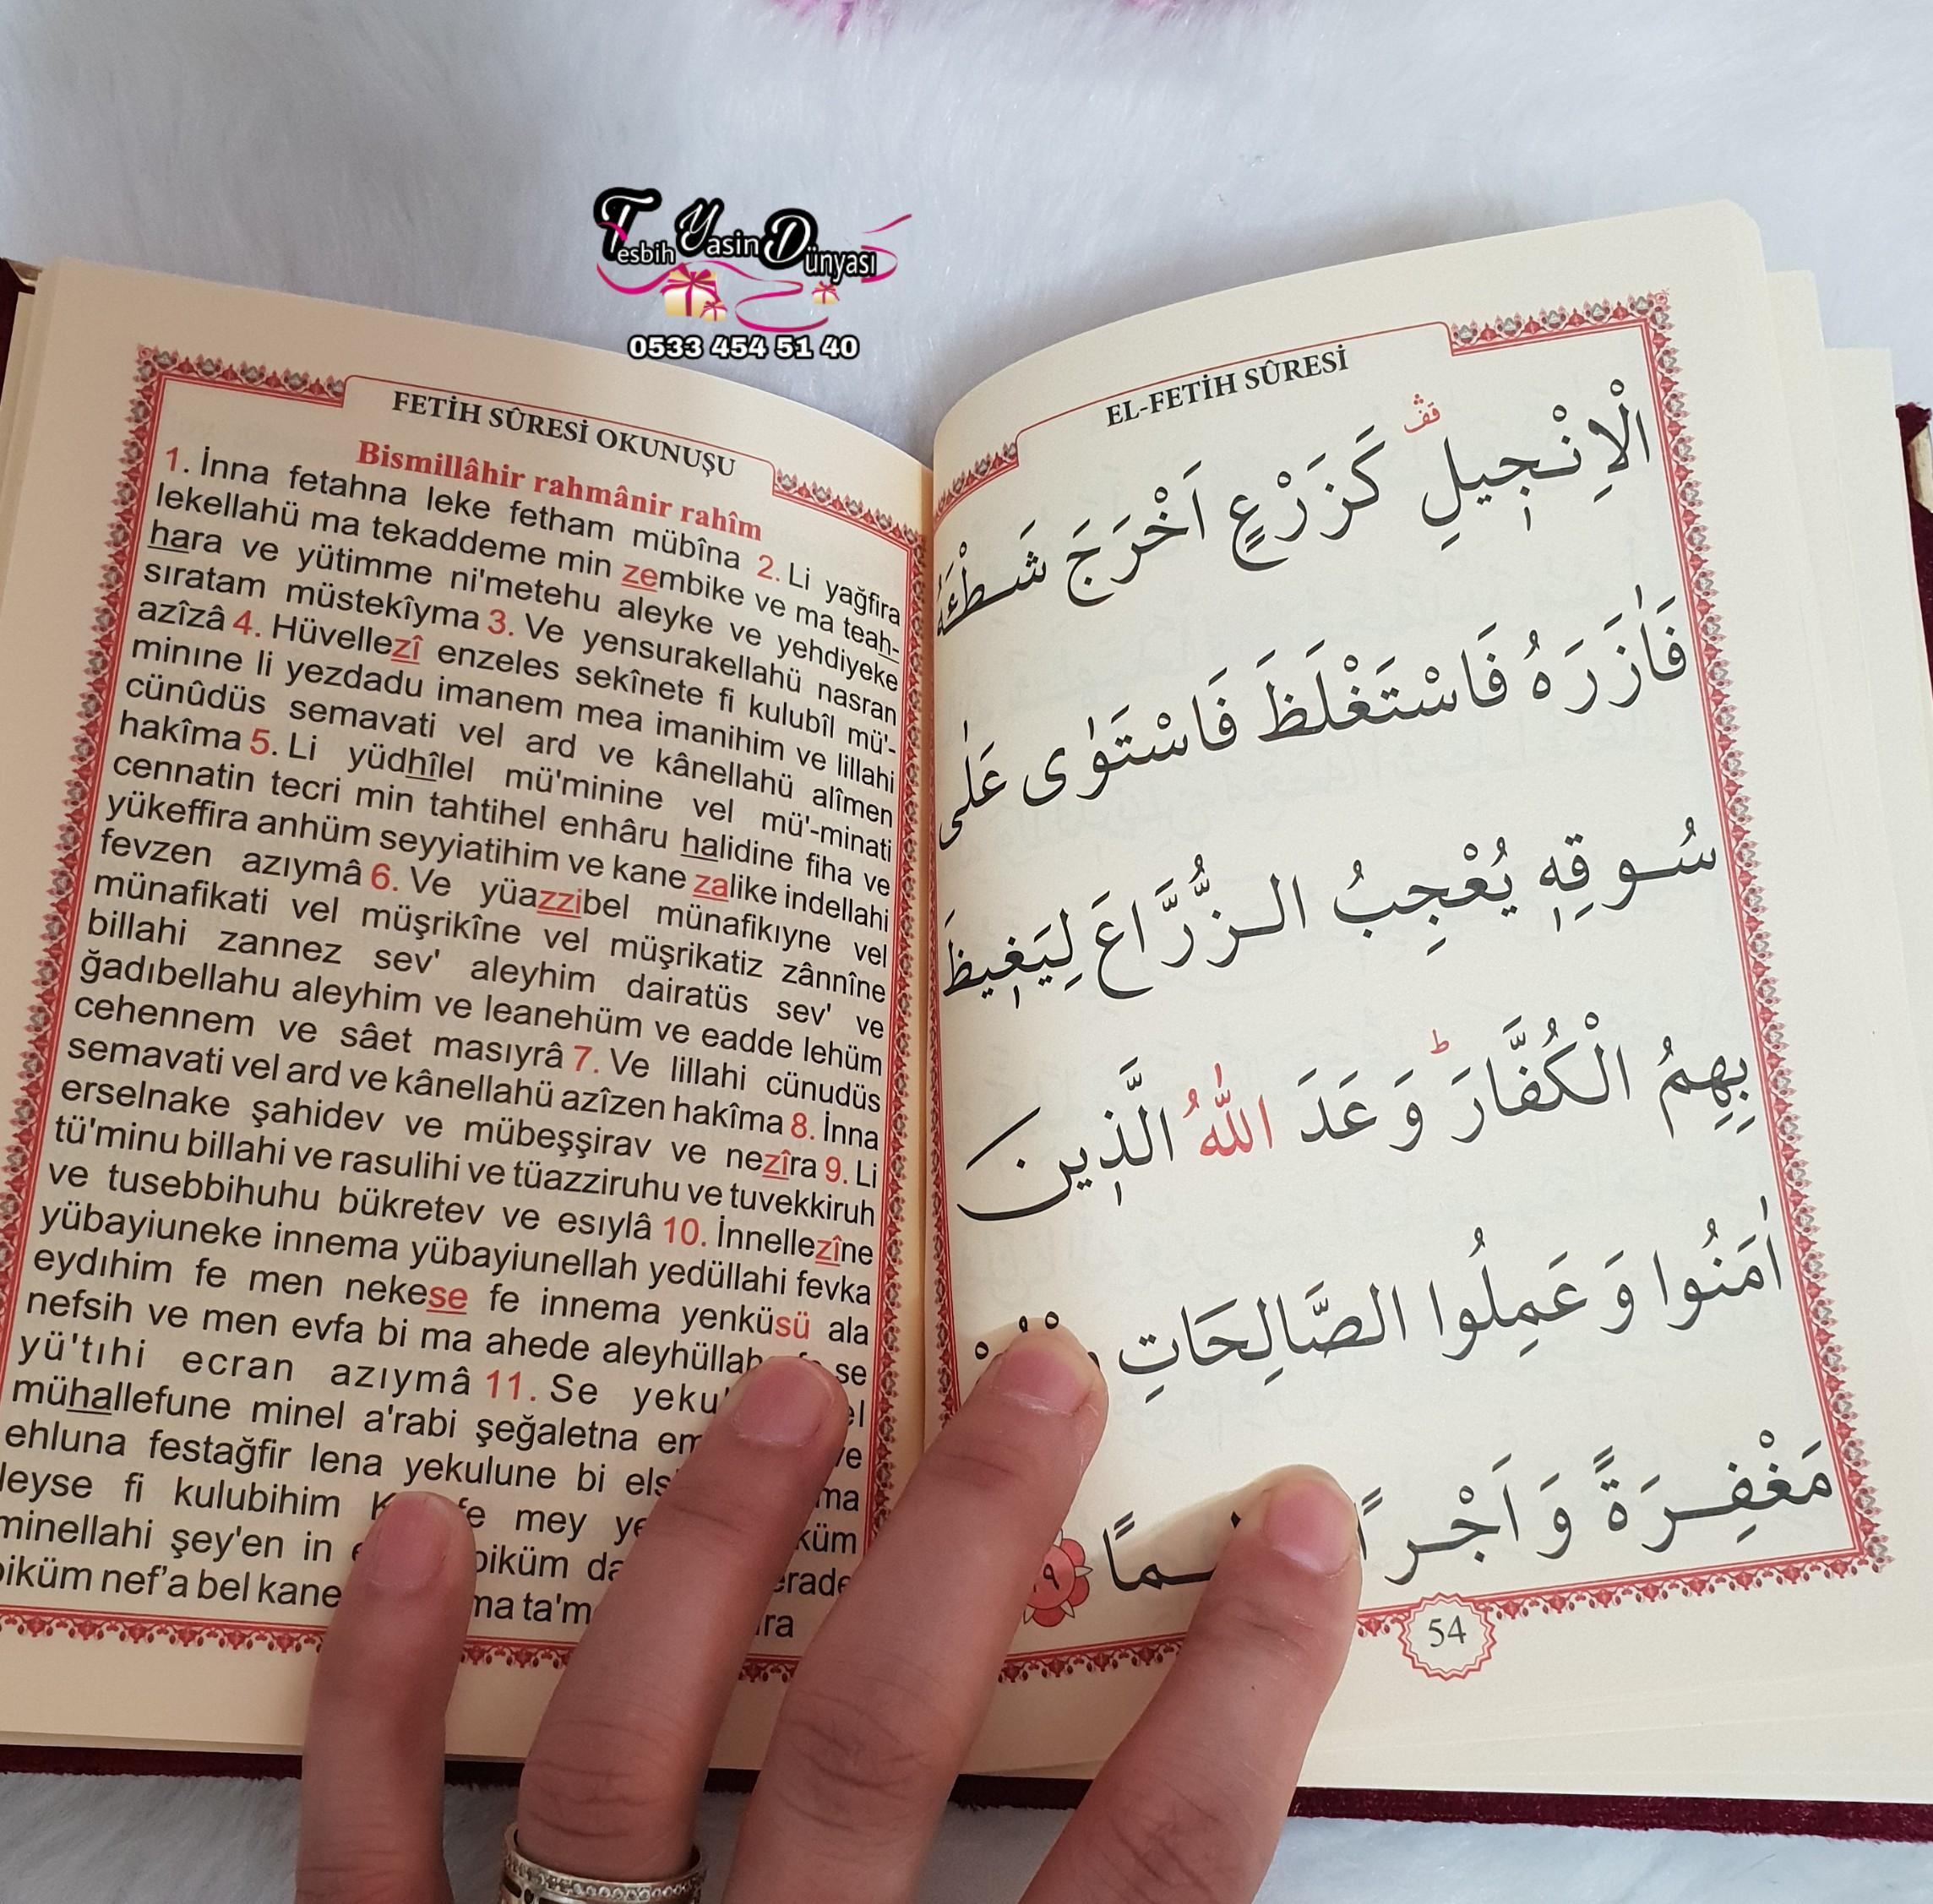 Tesbih Yasin Dünyası
0533 454 51 40
FETİH SÛRESİ OKUNUŞU
Bismillâhir rahmânir rahîm
1. İnna fetahna leke fetham mübîna 2. Li yağfira
lekellahü ma tekaddeme min zembike ve ma teah-
hara ve yütimme ni'metehu aleyke ve yehdiyeke
sıratam müstekîyma 3. Ve yensurakellahü nasran
azîzâ 4. Hüvellezî enzeles sekînete fi kulubîl mü'-
minıne li yezdadu imanem mea imanihim ve lillahi
cünûdüs semavati vel ard ve kânellahü alîmen
hakîma 5. Li yüdhîlel mü'minine vel mü'-minati
cennatin tecri min tahtihel enhâru halidine fiha ve
yükeffira anhüm seyyiatihim ve kane zalike indellahi
fevzen azıymâ 6. Ve yüazzibel münafikıyne vel
münafikati vel müşrikîne vel müşrikatiz zânnîne
billahi zannez sev' aleyhim dairatüs sev' ve
ğadıbellahu aleyhim ve leanehüm ve eadde lehüm
cehennem ve sâet masıyrâ 7. Ve lillahi cünudüs
semavati vel ard ve kânellahü azîzen hakîma 8. İnna
erselnake şahidev ve mübeşşirav ve nezîra 9. Li
tü'minu billahi ve rasulihi ve tüazziruhu ve tuvekkiruh
ve tusebbihuhu bükretev ve esıylâ 10. İnnellezîne
yübayiuneke innema yübayiunellah yedüllahi fevka
eydıhim fe men nekese fe innema yenküsü ala
nefsih ve men evfa bi ma ahede se
yü'tıhi ecran azıymâ 11. Se
mühallefune minel a'rabi şeğaletna
ehluna festağfir lena yekulune bi
leyse fi kulubihim mey
minellahi şey'en in
biküm nef'a bel kane
EL-FETİH SÛRESİ
الْاِنْجٖيلِ كَزَرْعٍ اَخْرَجَ شَطْـَٔهُ
فَاٰزَرَهُ فَاسْتَغْلَظَ فَاسْتَوٰى عَلٰى
سُوقِهٖ يُعْجِبُ الزُّرَّاعَ لِيَغٖيظَ
بِهِمُ الْكُفَّارَ وَعَدَ اللّٰهُ الَّذٖينَ
اٰمَنُوا وَعَمِلُوا الصَّالِحَاتِ
مَغْفِرَةً وَاَجْرًا
54